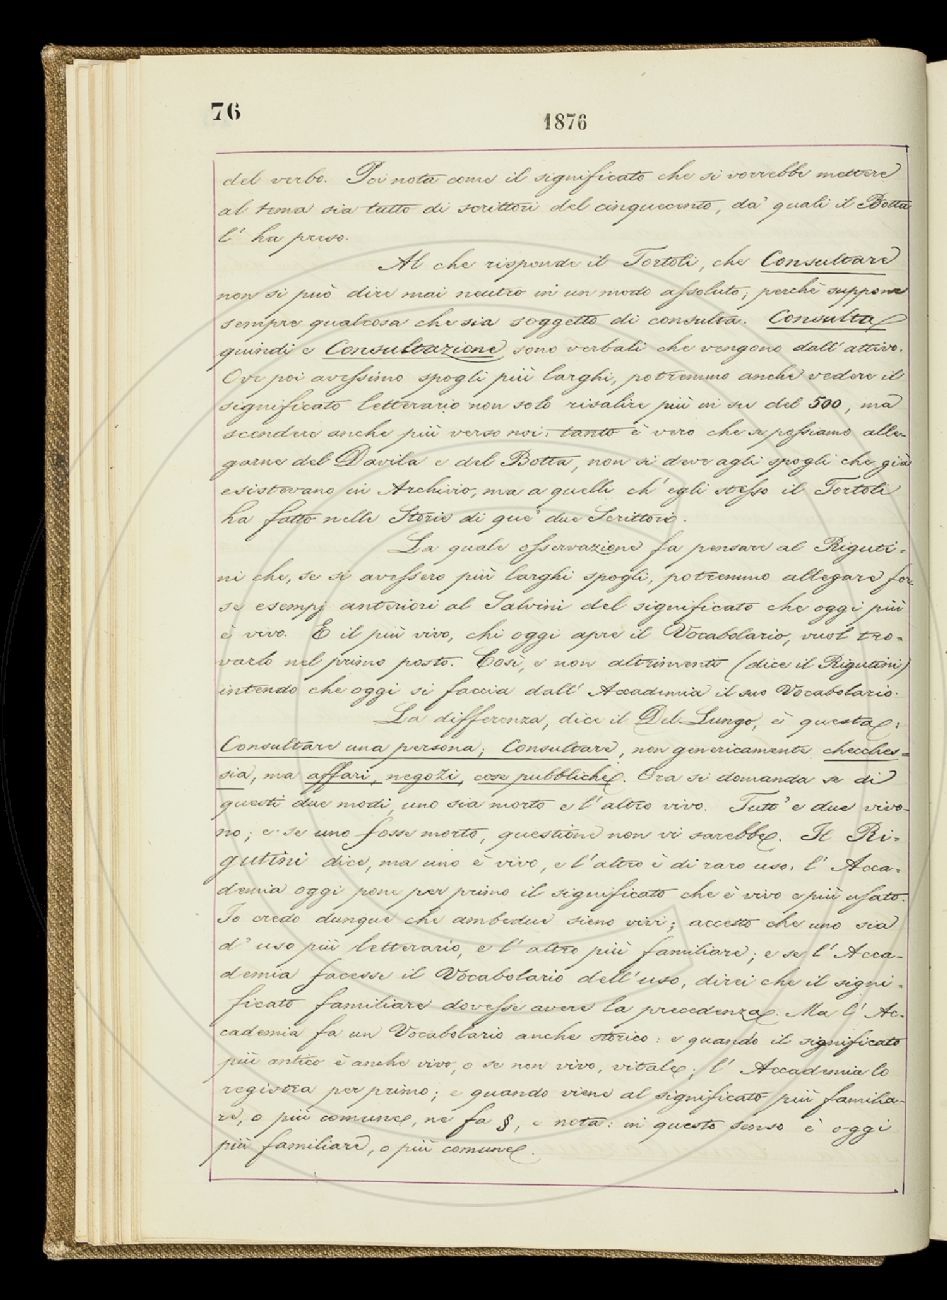 76
1876
del verbo. Poi nota come il significato che si vorrebbe mettere
al tema sia tutto di scrittori del cinquecento, da' quali il Botta
l' ha preso.
Al che risponde il Tortoli, che Consultare
non si può dire mai neutro in un modo assoluto; perchè suppone
sempre qualcosa che sia soggetto di consulta. Consulta
quindi e Consultazione sono verbali che vengono dall' attivo.
Ove poi avessimo spogli più larghi, potremmo anche vedere il
significato letterario non solo risalire più in su del 500, ma
scendere anche più verso noi: tanto è vero che se possiamo alle-
garne del Davila e del Botta, non si deve agli spogli che già
esistevano in Archivio, ma a quelli ch' egli stesso il Tortoli
ha fatto nelle Storie di que' due Scrittori.
La quale osservazione fa pensare al Riguti-
ni che, se si avessero più larghi spogli, potremmo allegare for-
se esempj anteriori al Salvini del significato che oggi più
è vivo. E il più vivo, chi oggi apre il Vocabolario, vuol tro-
varlo nel primo posto. Così, e non altrimenti (dice il Rigutini)
intendo che oggi si faccia dall' Accademia il suo Vocabolario.
La differenza, dice il Del Lungo, è questa:
Consultare una persona; Consultare, non genericamente checches-
sia, ma affari, negozi, cose pubbliche. Ora si domanda se di
questi due modi, uno sia morto e l'altro vivo. Tutt' e due vivo-
no; e se uno fosse morto, questione non vi sarebbe. Il Ri-
gutini dice, ma uno è vivo, e l'altro è di raro uso. l' Acca-
demia oggi pone per primo il significato che è vivo e più usato.
Io credo dunque che ambedue sieno vivi; accetto che uno sia
d' uso più letterario, e l' altro più familiare; e se l' Acca-
demia facesse il Vocabolario dell' uso, direi che il signi-
ficato familiare dovesse avere la precedenza. Ma l' Ac-
cademia fa un Vocabolario anche storico: e quando il significato
più antico è anche vivo, o se non vivo, vitale; l' Accademia lo
registra per primo; e quando viene al significato più familia-
re, o più comune, ne fa §, e nota: in questo senso è oggi
più familiare, o più comune.